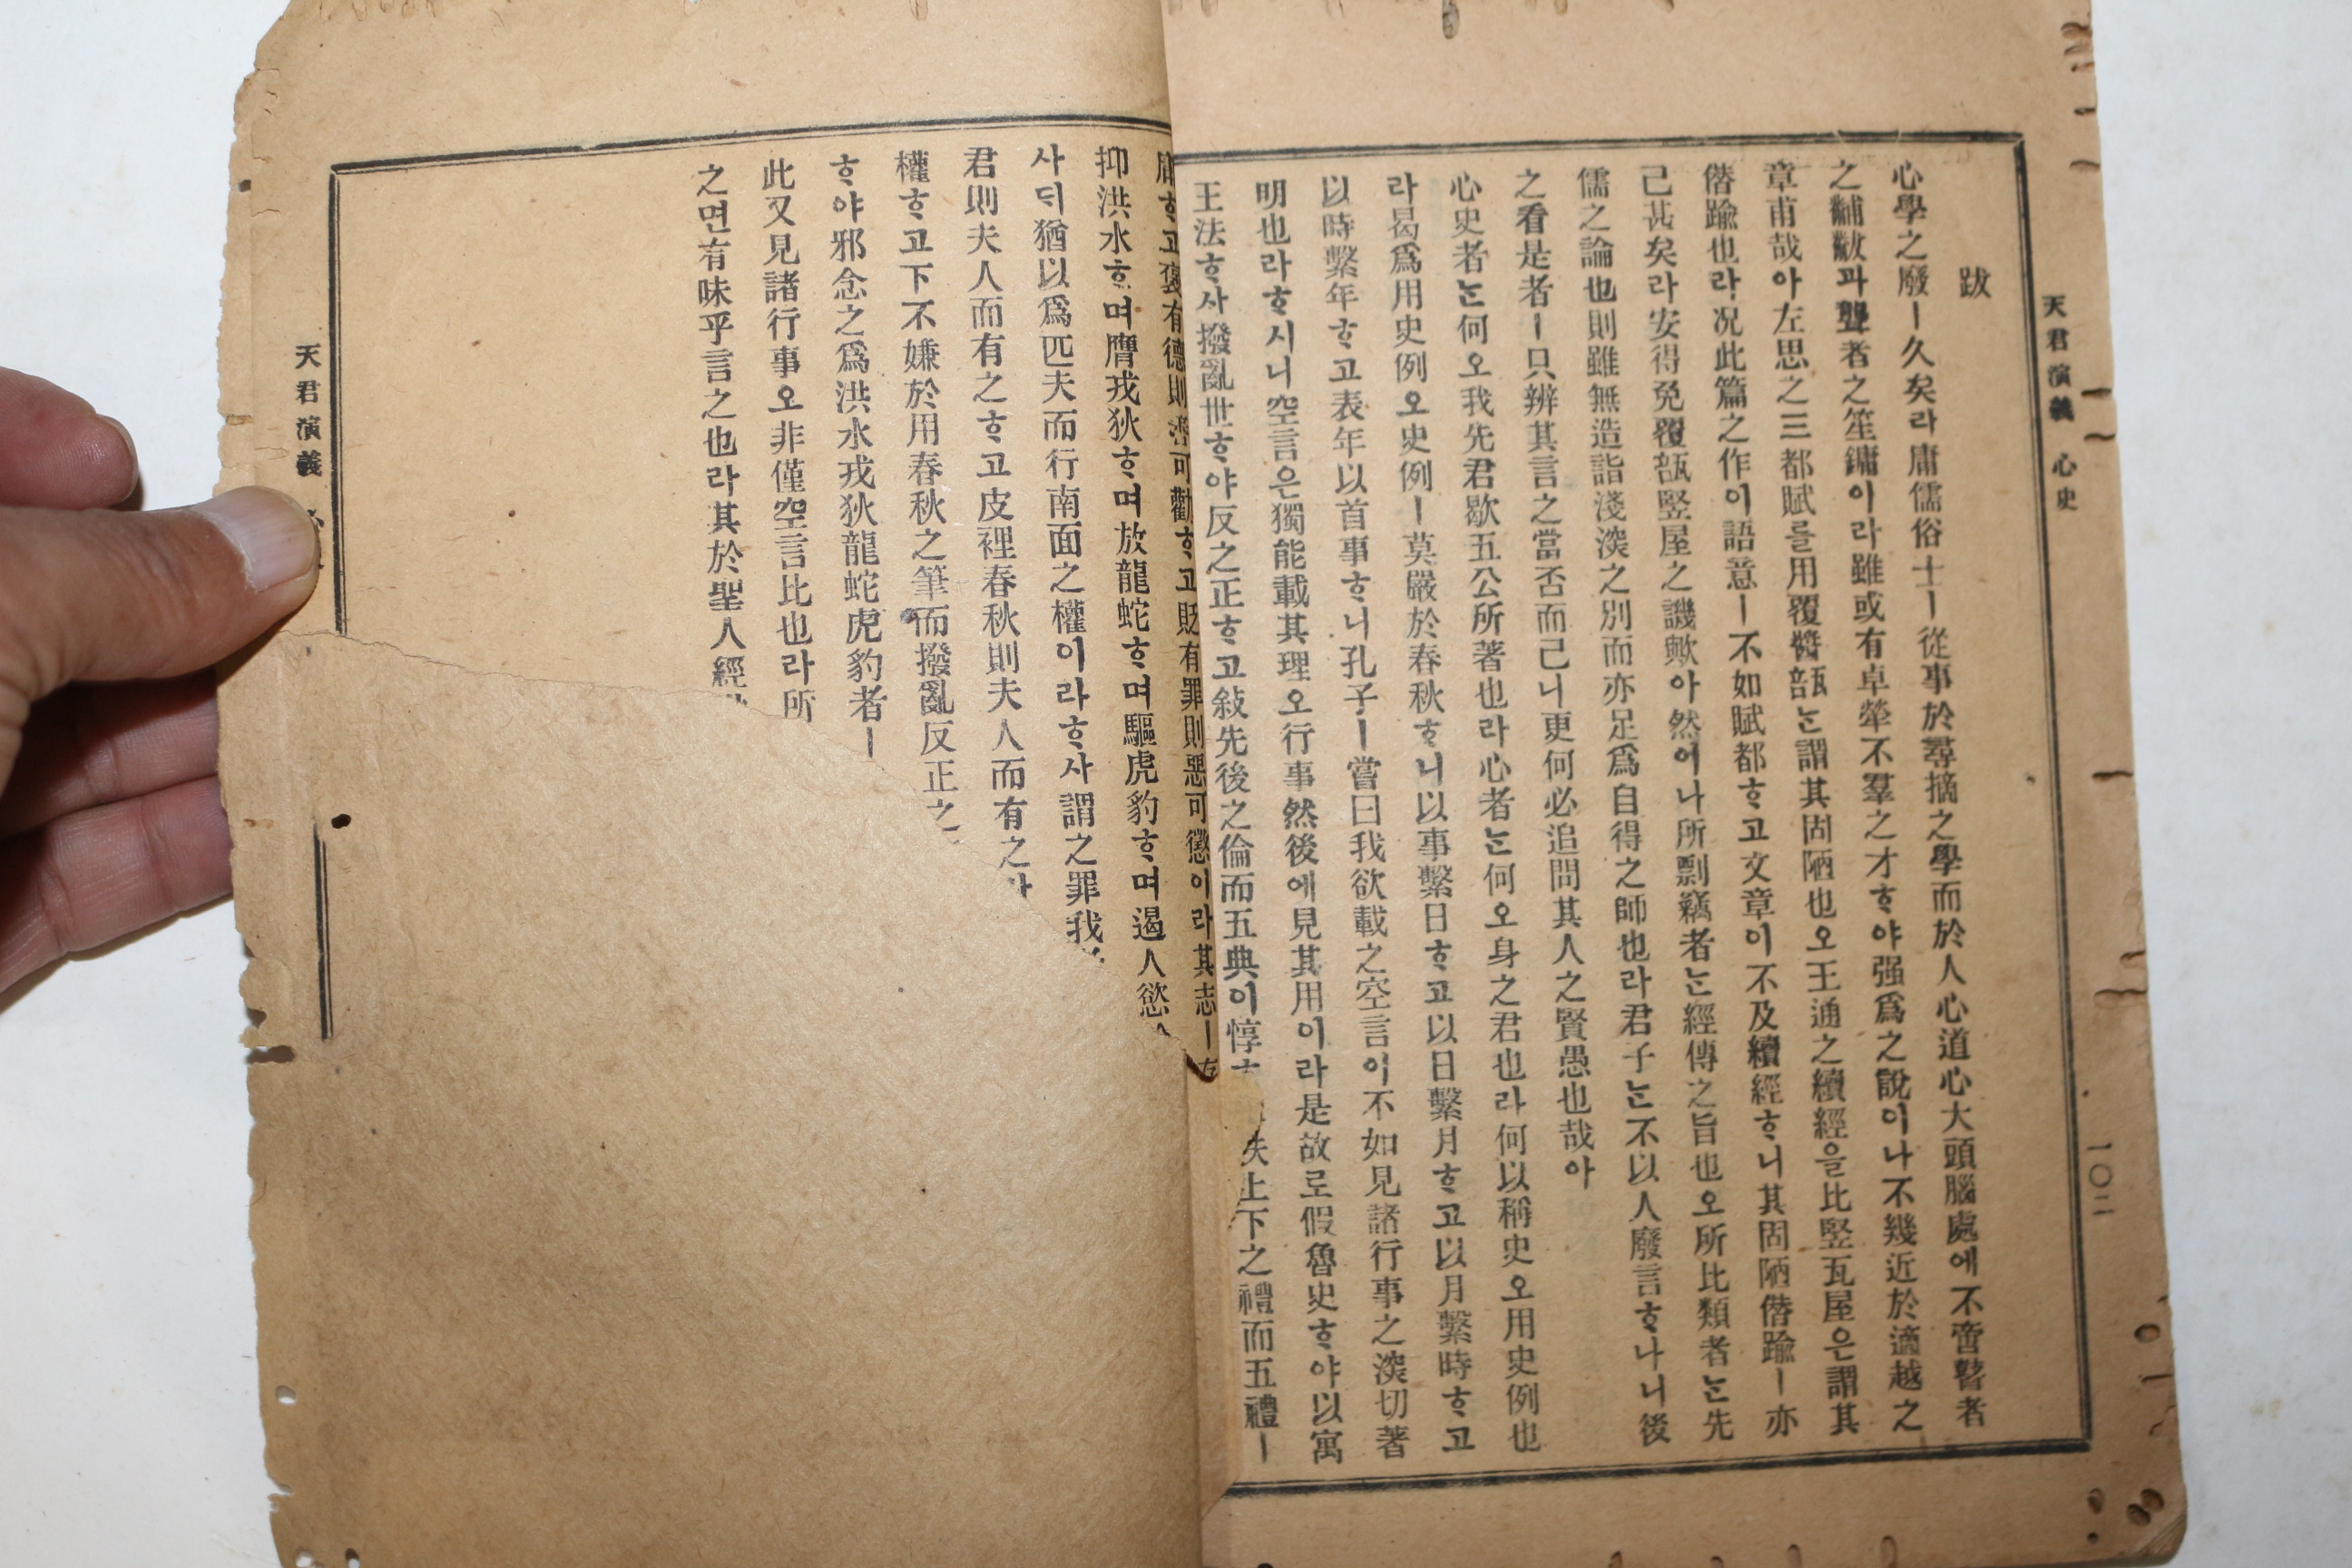 天君演義 心史
一〇二
跋
心學之廢ㅣ久矣라庸儒俗士ㅣ從事於尋摘之學而於人心道心大頭腦處에不啻瞽者
之黼黻과聾者之笙鏞이라雖或有卓犖不羣之才ᄒᆞ야强爲之說이나不幾近於適越之
章甫哉아左思之三都賦를用覆醬瓿ᄂᆞᆫ謂其固陋也오王通之續經을比竪瓦屋은謂其
僭踰也라況此篇之作이語意ㅣ不如賦都ᄒᆞ고文章이不及續經ᄒᆞ니其固陋僭踰ㅣ亦
己甚矣라安得免覆瓿竪屋之譏歟아然이나所剽竊者ᄂᆞᆫ經傳之旨也오所比類者ᄂᆞᆫ先
儒之論也則雖無造詣淺深之別而亦足爲自得之師也라君子ᄂᆞᆫ不以人廢言ᄒᆞ나니後
之看是者ㅣ只辨其言之當否而己니更何必追問其人之賢愚也哉아
心史者ᄂᆞᆫ何오我先君歇五公所著也라心者ᄂᆞᆫ何오身之君也라何以稱史오用史例也
라曷爲用史例오史例ㅣ莫嚴於春秋ᄒᆞ니以事繫日ᄒᆞ고以日繫月ᄒᆞ고以月繫時ᄒᆞ고
以時繫年ᄒᆞ고表年以首事ᄒᆞ니孔子ㅣ嘗曰我欲載之空言이不如見諸行事之深切著
明也라ᄒᆞ시니空言은獨能載其理오行事然後에見其用이라是故로假魯史ᄒᆞ야以寓
王法ᄒᆞ사撥亂世ᄒᆞ야反之正ᄒᆞ고敍先後之倫而五典이惇 秩上下之禮而五禮ㅣ
庸ᄒᆞ고褒有德則善可勸ᄒᆞ고貶有罪則惡可懲이라其志ㅣ
抑洪水ᄒᆞ며膺戎狄ᄒᆞ며放龍蛇ᄒᆞ며驅虎豹ᄒᆞ며遏人慾
사ᄃᆡ猶以爲匹夫而行南面之權이라ᄒᆞ사謂之罪我
君則夫人而有之ᄒᆞ고皮裡春秋則夫人而有之
權ᄒᆞ고下不嫌於用春秋之筆而撥亂反正之
ᄒᆞ야邪念之爲洪水戎狄龍蛇虎豹者ㅣ
此又見諸行事오非僅空言比也라所
之면有味乎言之也라其於聖人經
天君演義